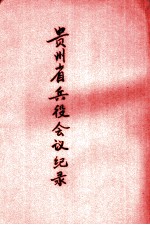 贵州省兵役会议纪录